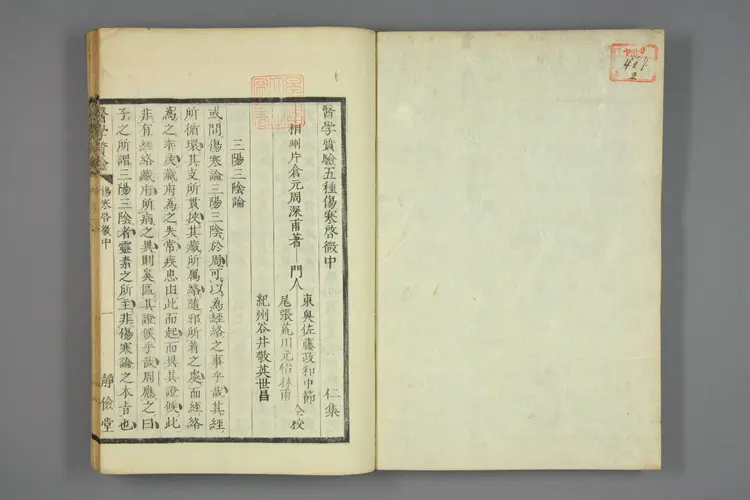 醫學質驗五種傷寒啓微中
仁集
相州片倉元周深甫著
門人
東奥佐藤政和中節
尾張荒川元恪
紀州谷井敬英世昌
仝校
三陽三陰論
或問傷寒論三陽三陰於周可以為經絡之事乎哉其經
所循環其支所貫挾其藏所属絡隨邪所着之處而經絡
為之乖戾藏府為之失常疾患由此而起而異其證候此
非有經絡藏府所病之異則奚區其證候乎哉周應之曰
子之所謂三陽三陰者靈素之所主非傷寒論之本旨也
醫學質驗
傷寒啓微中
一
靜儉堂